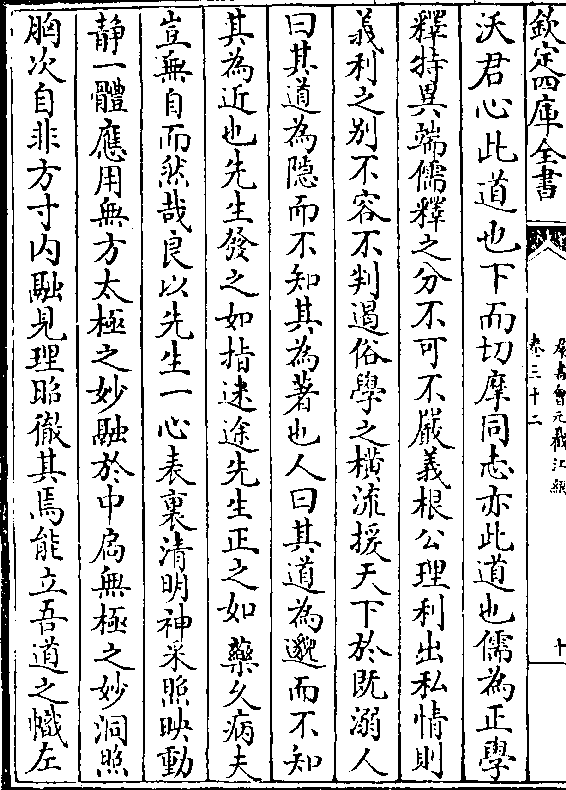 欽定四庫全書
羣書會元截江網
卷三十二
十
沃君心此道也下而切摩同志亦此道也儒為正學
釋特異端儒釋之分不可不嚴義根公理利出私情則
義利之别不容不判遏俗學之横流援天下於既溺人
曰其道為隱而不知其為著也人曰其道為邈而不知
其為近也先生發之如指迷途先生正之如藥久病夫
豈無自而然哉良以先生一心表裏清明神采照映動
静一體應用無方太極之妙融於中扄無極之妙洞照
胸次自非方寸内融見理昭徹其焉能立吾道之幟左